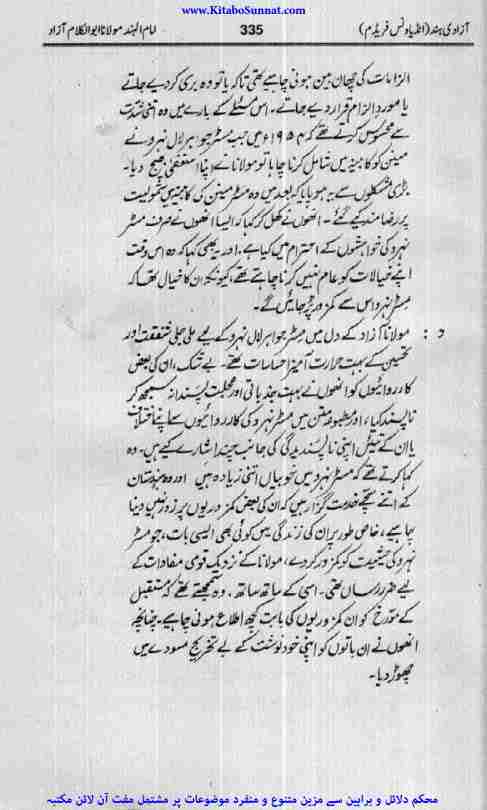 www.KitaboSunnat.com
آزادی ہند (انڈیا ونس فریڈم) 335 امام الہند مولانا ابوالکلام آزاد
الزامات کی چھان بین ہونی چاہیے تھی تاکہ یا تو وہ بری کر دیے جاتے
یا مورد الزام قرار دیے جاتے۔ اس مسئلے کے بارے میں وہ اتنی شدت
سے محسوس کرتے تھے کہ ۱۹۵۴ء میں جب مسٹر جواہر لال نہرو نے
مینن کو کابینہ میں شامل کرنا چاہا تو مولانا نے اپنا استعفیٰ بھیج دیا۔
بڑی مشکلوں سے یہ ہو پایا کہ بعد میں وہ مسٹر مینن کی کابینہ میں شمولیت
پر رضامند کیے گئے۔ انھوں نے کھل کر کہا کہ ایسا انھوں نے صرف مسٹر
نہرو کی خواہشوں کے احترام میں کیا ہے۔ اور یہ بھی کہا کہ وہ اس وقت
اپنے خیالات کو عام نہیں کرنا چاہتے تھے، کیونکہ ان کا خیال تھا کہ
مسٹر نہرو اس سے کمزور پڑ جائیں گے۔
د : مولانا آزاد کے دل میں مسٹر جواہر لال نہرو کے لیے ملی جلی شفقت اور
تحسین کے بہت حرارت آمیز احساسات تھے۔ بے شک، ان کی بعض
کارروائیوں کو انھوں نے بہت جذباتی اور عجلت پسندانہ سمجھ کر
ناپسند کیا، اور مطبوعہ متن میں مسٹر نہرو کی کارروائیوں سے اپنے اختلاف
یا ان کے تئیں اپنی ناپسندیدگی کی جانب چند اشارے کیے ہیں۔ وہ
کہا کرتے تھے کہ مسٹر نہرو میں خوبیاں اتنی زیادہ ہیں اور وہ ہندستان
کے اتنے سچے خدمت گزار ہیں کہ ان کی بعض کمزوریوں پر زور نہیں دینا
چاہیے، خاص طور پر ان کی زندگی میں کوئی بھی ایسی بات، جو مسٹر
نہرو کی حیثیت کو کمزور کر دے، مولانا کے نزدیک قومی مفادات کے
لیے ضرر رساں تھی۔ اسی کے ساتھ ساتھ، وہ سمجھتے تھے کہ مستقبل
کے مورخ کو ان کمزوریوں کی بابت کچھ اطلاع ہونی چاہیے۔ چنانچہ
انھوں نے ان باتوں کو اپنی خودنوشت کے بے تخریج مسودے میں
چھوڑ دیا۔
محکم دلائل و براہین سے مزین متنوع و منفرد موضوعات پر مشتمل مفت آن لائن مکتبہ